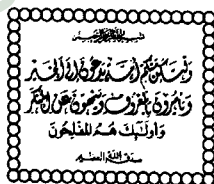 بسم الله الرحمن الرحيم
ولتكن منكم أمة يدعون إلى الخير
ويأمرون بالمعروف وينهون عن المنكر
وأولئك هم المفلحون
صدق الله العظيم